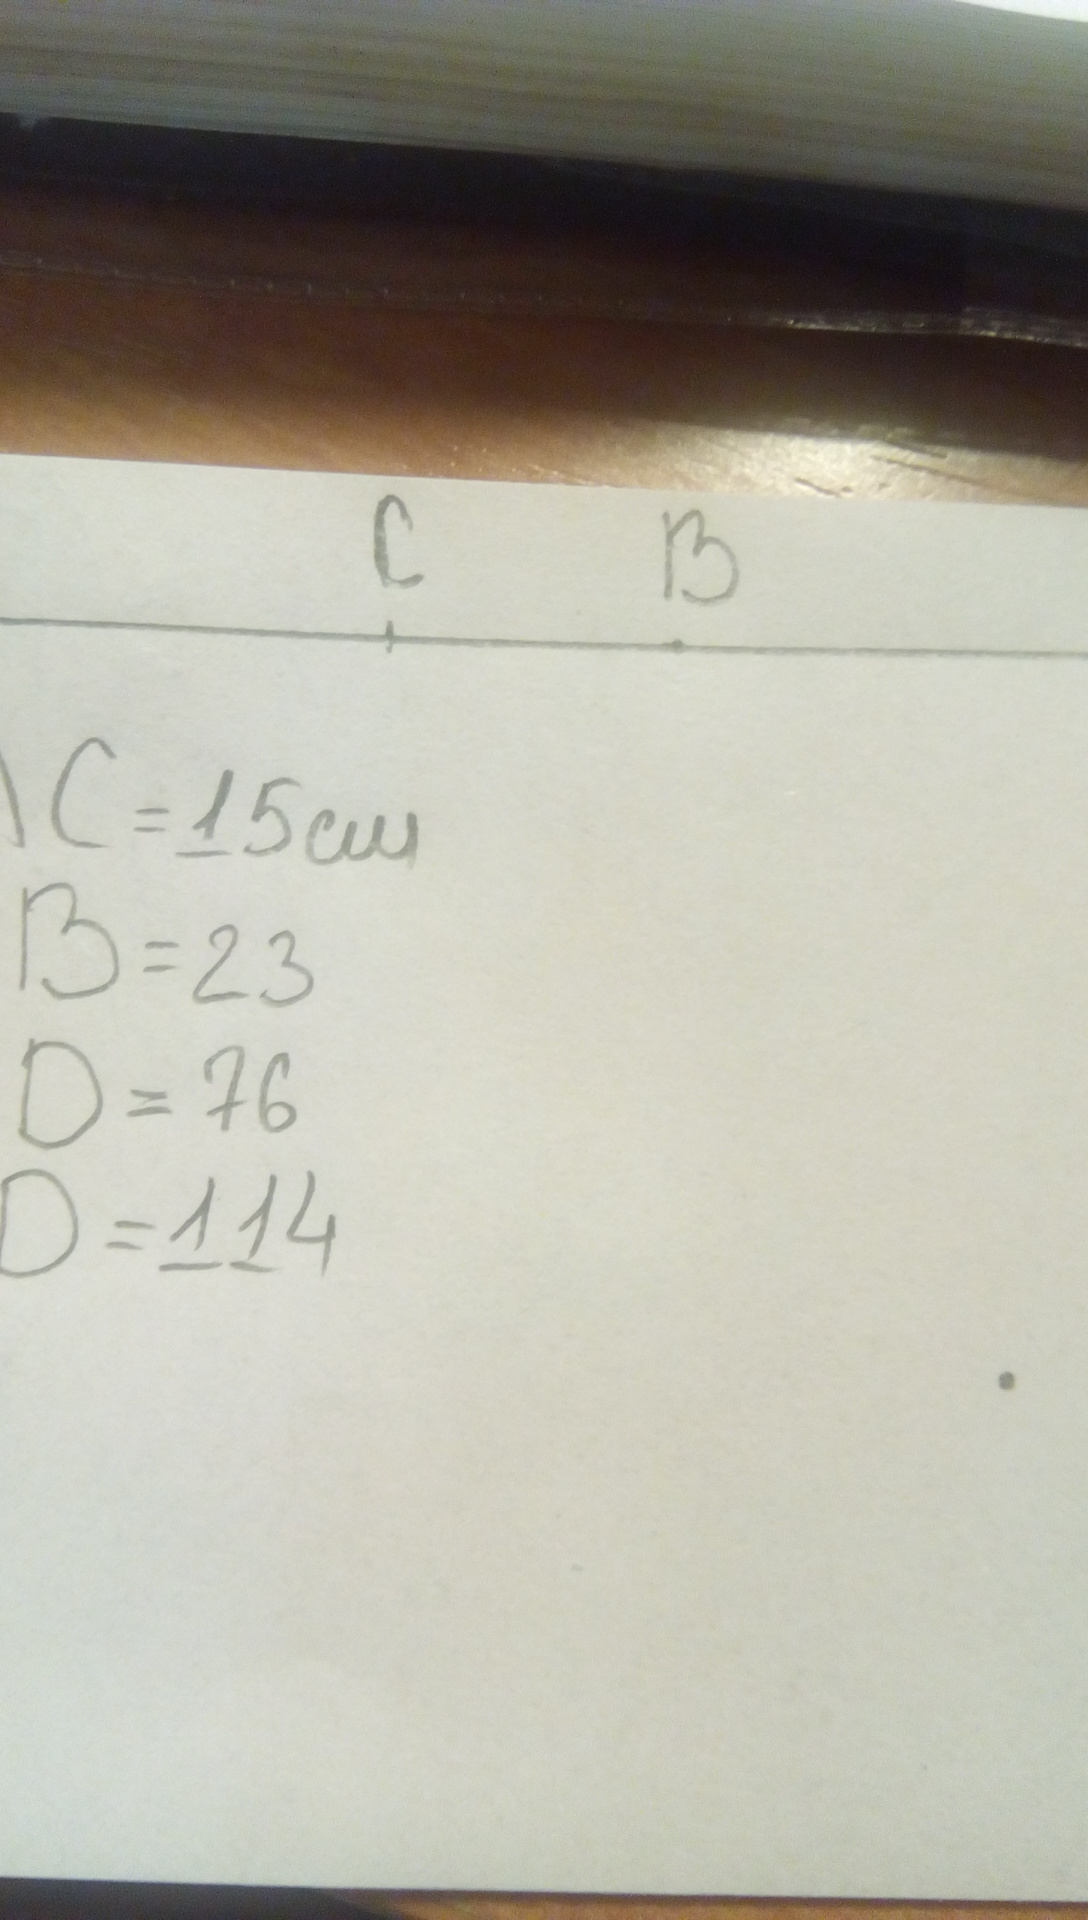 C B
AC=15cm
B=23
D=76
D=114